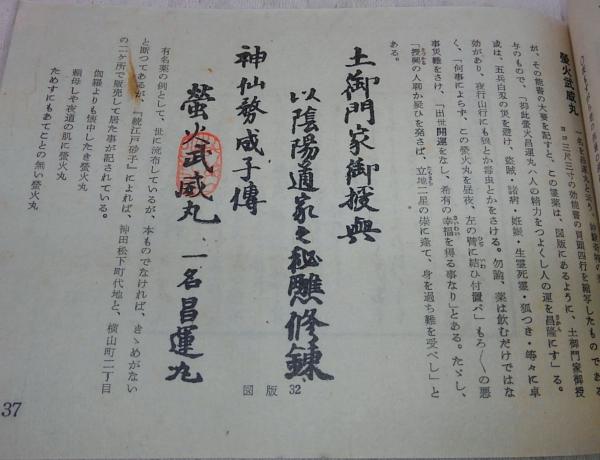 螢火武威丸
一名昌運丸と云う。
ヨコ三尺三寸の効能書の冒頭四行を縮写したものである
が、その能書の大要を記すと、この霊薬は、図版にあるように、土御門家御授
与のもので、「抑此螢火昌運丸ハ人の精力をつよくし人の運を昌隆にす」る。
或は、五兵白刃の災を避け、盗賊・諸病・妊娠・生霊死霊・狐つき・等々に卓
効があり、夜行山行にも狼とか毒虫とかをさける。勿論、薬は飲むだけではな
く、「何事によらず、この螢火丸を昼夜、左の臂に結ひ付置バ」もろ〱の悪
事災難をさけ、「出世開運をなし、希有の幸福を得る事なり」とある。たゞし、
「授与の人聊か疑ひを発さば、立地二星の祟に逢て、身を過ち難を受べし」と
ある。
土御門家御授與
以陰陽道家之秘雕修錬
神仙務成子傳
螢火武威丸 一名昌運丸
図版 32
有名薬の例として、世に流布しているが、本ものでなければ、きゝめがない
と断つてあるが、『続江戸砂子』によれば、神田松下町代地と、横山町二丁目
の二ケ所で販売して居た事が記されている。
伽羅よりも懐中したき螢火丸
頼母しや夜道の肌に螢火丸
ためすにもあてことの無い螢火丸
37